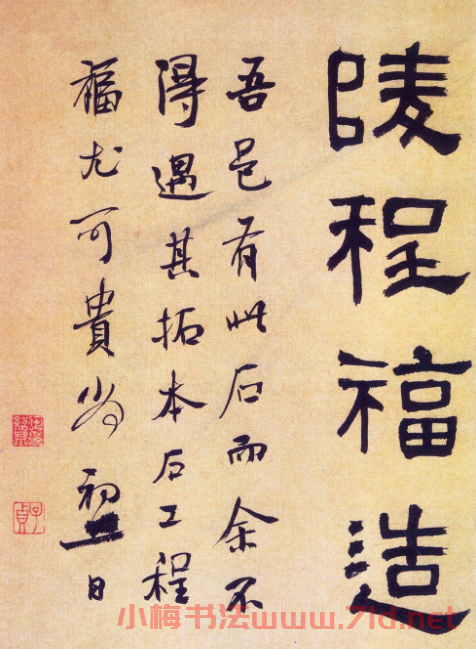 陵程福造
吾邑有此石而余不
得遇其拓本石工程
福尤可貴初日
子貞
小梅书法www.7ld.net